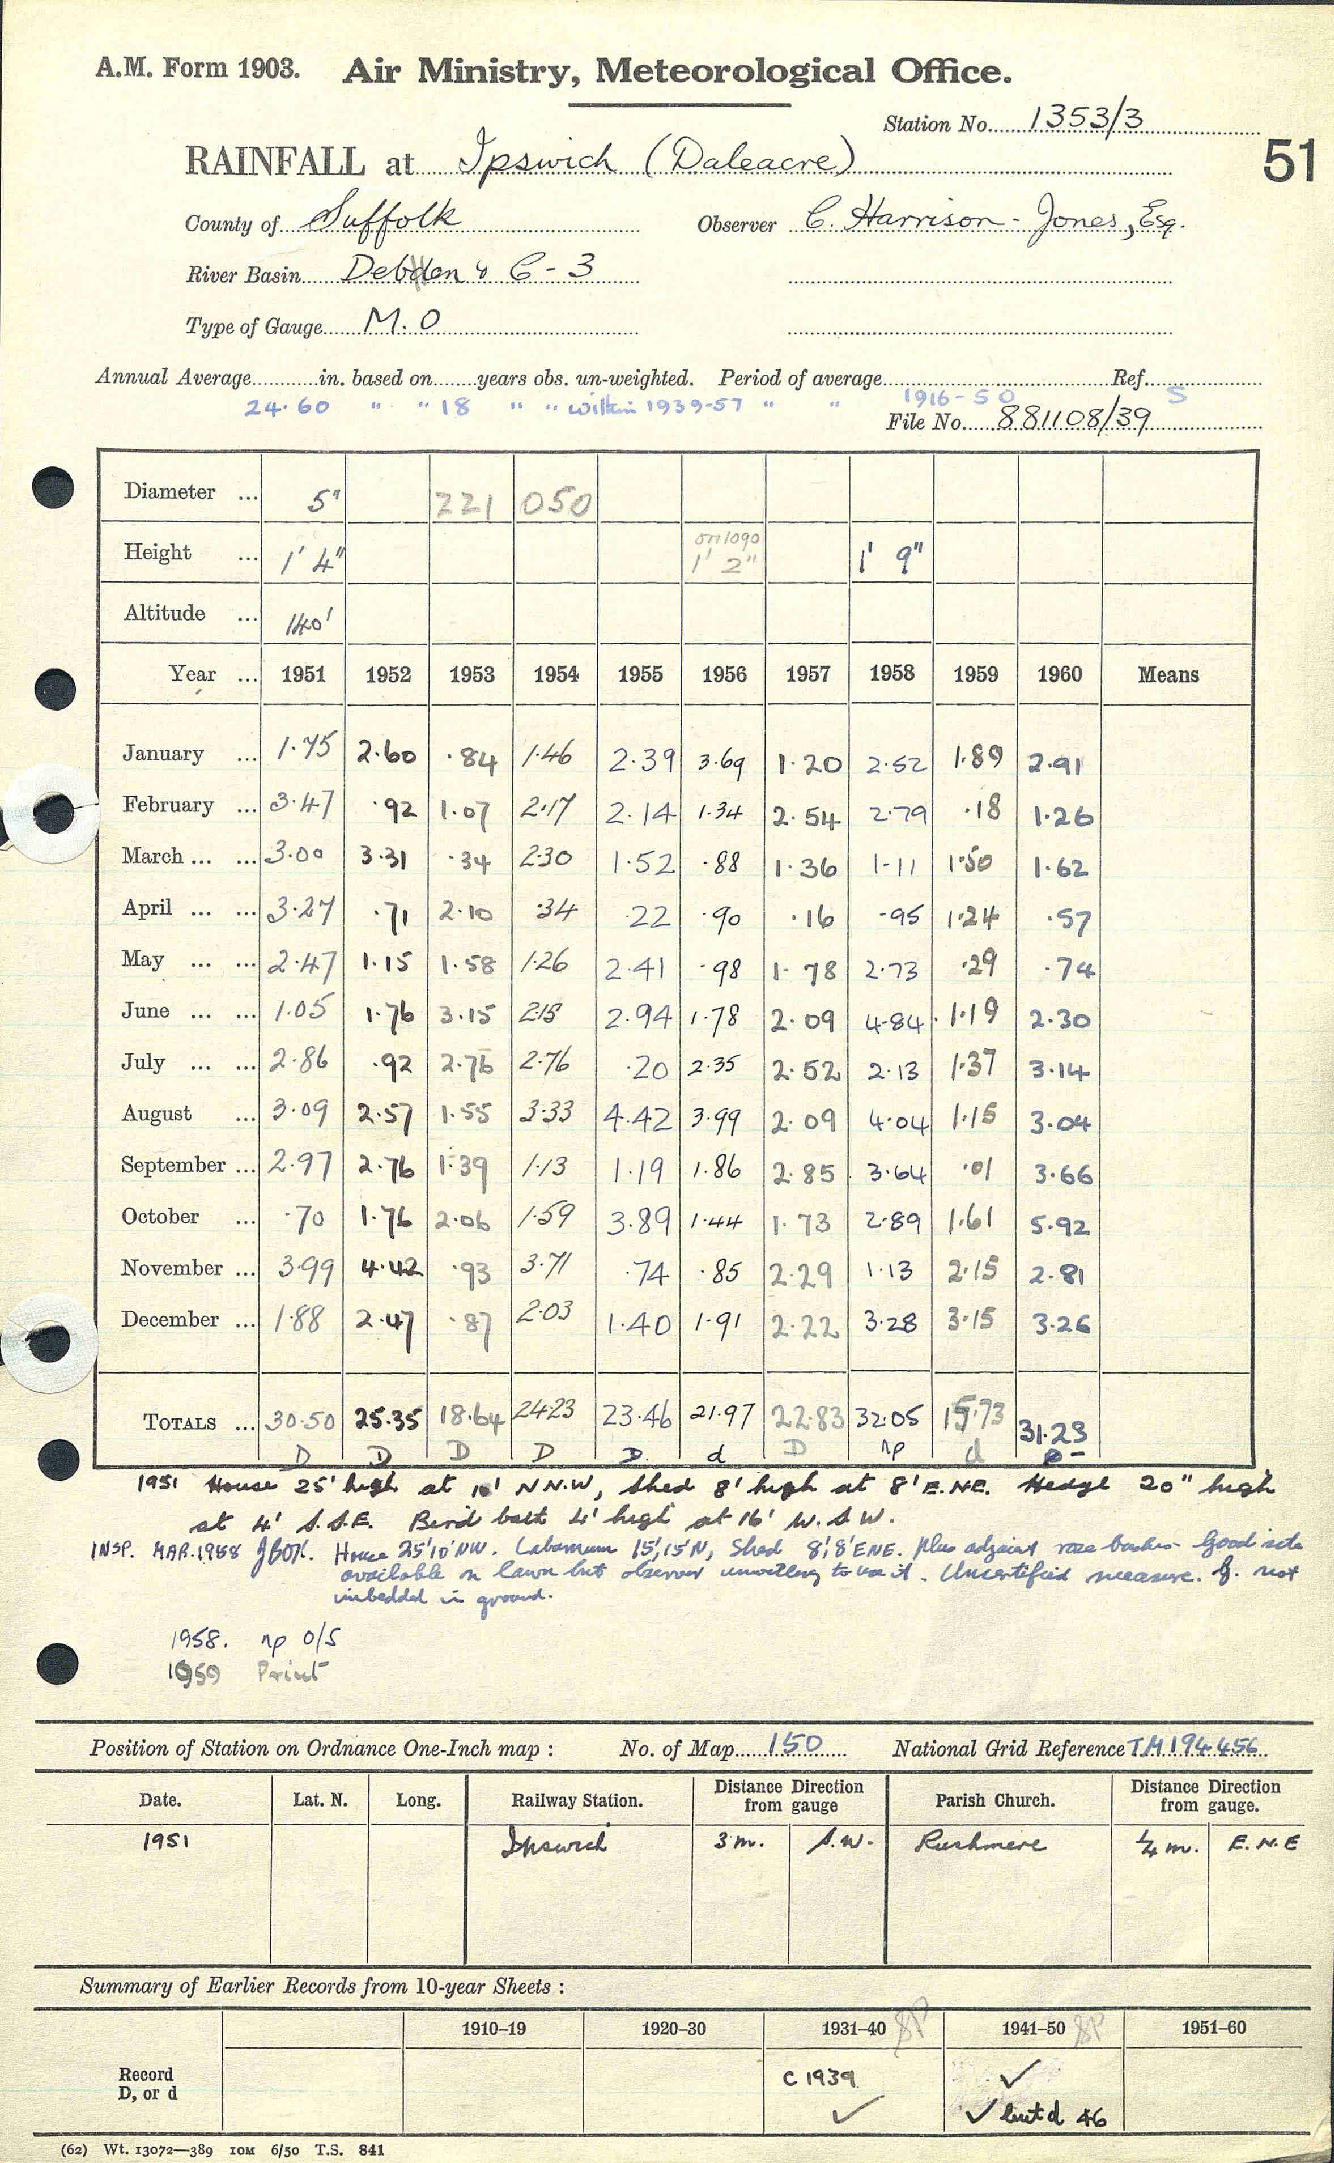 A.M. Form 1903. Air Ministry, Meteorological Office.
Station No. 1353/3
51
RAINFALL at Ipswich (Daleacre)
County of Suffolk Observer C. Harrison-Jones, Esq.
River Basin Debden & C-3
Type of Gauge M.O
Annual Average in. based on years obs. un-weighted. Period of average Ref.
24.60 " " 18 " " within 1939-57 " " 1916-50 S
File No. 881108/39
Diameter ... 5" 221 050
Height ... 1' 4" on 1090 1' 2" 1' 9"
Altitude ... 140'
Year ... 1951 1952 1953 1954 1955 1956 1957 1958 1959 1960 Means
January ... 1.75 2.60 .84 1.46 2.39 3.69 1.20 2.52 1.89 2.91
February ... 3.47 .92 1.07 2.17 2.14 1.34 2.54 2.79 .18 1.26
March ... ... 3.00 3.31 .34 2.30 1.52 .88 1.36 1.11 1.50 1.62
April ... ... 3.27 .71 2.10 .34 .22 .90 .16 .95 1.24 .57
May ... ... 2.47 1.15 1.58 1.26 2.41 .98 1.78 2.73 .29 .74
June ... ... 1.05 1.76 3.15 2.15 2.94 1.78 2.09 4.84 1.19 2.30
July ... ... 2.86 .92 2.76 2.76 .20 2.35 2.52 2.13 1.37 3.14
August ... 3.09 2.57 1.55 3.33 4.42 3.99 2.09 4.04 1.15 3.04
September ... 2.97 2.76 1.39 1.13 1.19 1.86 2.85 3.64 .01 3.66
October ... .70 1.76 2.06 1.59 3.89 1.44 1.73 2.89 1.61 5.92
November ... 3.99 4.42 .93 3.71 .74 .85 2.29 1.13 2.15 2.81
December ... 1.88 2.47 .87 2.03 1.40 1.91 2.22 3.28 3.15 3.26
TOTALS ... 30.50 25.35 18.64 24.23 23.46 21.97 22.83 32.05 15.73 31.23
D D D D D d D np d
1951 House 25' high at 10' N.N.W, Shed 8' high at 8' E.NE. Hedge 20" high
at 4' S.S.E. Bird bath 4' high at 16' W.S.W.
INSP. MAR.1958 House 25'10'NW. Laburnum 15',15'N, Shed 8',8'ENE. Plus adjacent rose bushes. Good site
available on lawn but observer unwilling to use it. Uncertified measure. G. not
imbedded in ground.
1958. np O/S
1959 Print
Position of Station on Ordnance One-Inch map : No. of Map 150 National Grid Reference TM194456
Date. Lat. N. Long. Railway Station. Distance Direction from gauge Parish Church. Distance Direction from gauge.
1951 Ipswich 3 m. S.W. Rushmere ¼ m. E.N.E
Summary of Earlier Records from 10-year Sheets :
1910–19 1920–30 1931–40 SP 1941–50 SP 1951–60
Record D, or d C 1939 ✓ ✓
✓ but d 46
(62) Wt. 13072—389 10M 6/50 T.S. 841